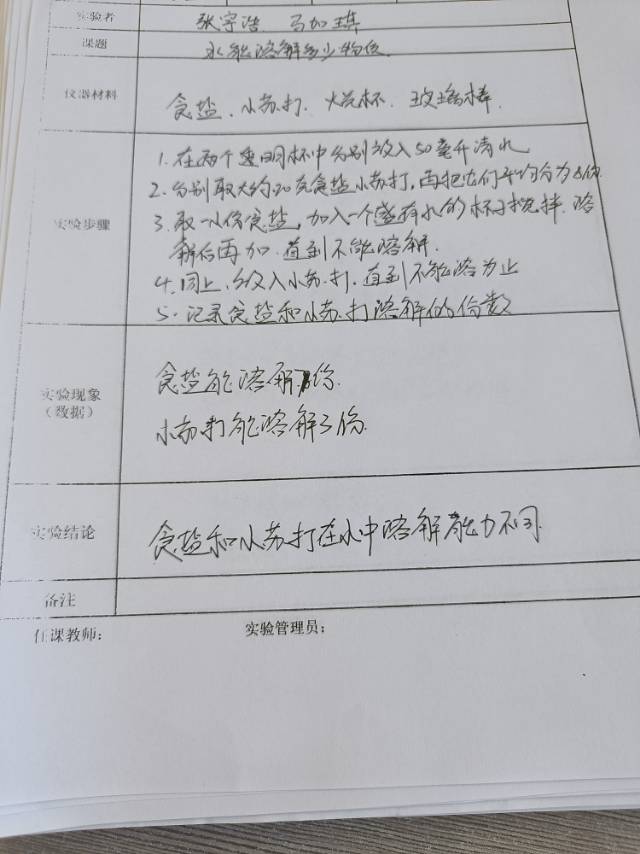 实验者 张宇浩 马加琪
课题 水能溶解多少物质
仪器材料 食盐、小苏打、烧杯、玻璃棒
实验步骤
1. 在两个透明杯中分别放入50毫升清水
2. 分别取大约20克食盐小苏打,再把它们平均分为8份
3. 取一小份食盐,加入一个盛有水的杯子搅拌.溶
解后再加.直到不能溶解.
4. 同上,放入小苏打.直到不能溶为止
5. 记录食盐和小苏打溶解的份数
实验现象
(数据)
食盐能溶解份.
小苏打能溶解3份.
实验结论 食盐和小苏打在水中溶解能力不同.
备注
任课教师: 实验管理员: